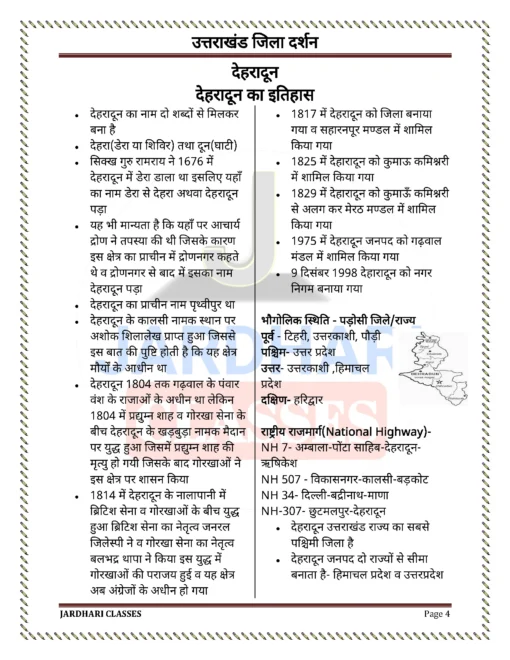 उत्तराखंड जिला दर्शन
देहरादून
देहरादून का इतिहास
• देहरादून का नाम दो शब्दों से मिलकर
बना है
• देहरा(डेरा या शिविर) तथा दून(घाटी)
• सिक्ख गुरु रामराय ने 1676 में
देहरादून में डेरा डाला था इसलिए यहाँ
का नाम डेरा से देहरा अथवा देहरादून
पड़ा
• यह भी मान्यता है कि यहाँ पर आचार्य
द्रोण ने तपस्या की थी जिसके कारण
इस क्षेत्र का प्राचीन में द्रोणनगर कहते
थे व द्रोणनगर से बाद में इसका नाम
देहरादून पड़ा
• देहरादून का प्राचीन नाम पृथ्वीपुर था
• देहरादून के कालसी नामक स्थान पर
अशोक शिलालेख प्राप्त हुआ जिससे
इस बात की पुष्टि होती है कि यह क्षेत्र
मौर्यों के आधीन था
• देहरादून 1804 तक गढ़वाल के पंवार
वंश के राजाओं के अधीन था लेकिन
1804 में प्रद्युम्न शाह व गोरखा सेना के
बीच देहरादून के खड़बुड़ा नामक मैदान
पर युद्ध हुआ जिसमें प्रद्युम्न शाह की
मृत्यु हो गयी जिसके बाद गोरखाओं ने
इस क्षेत्र पर शासन किया
• 1814 में देहरादून के नालापानी में
ब्रिटिश सेना व गोरखाओं के बीच युद्ध
हुआ ब्रिटिश सेना का नेतृत्व जनरल
जिलेस्पी ने व गोरखा सेना का नेतृत्व
बलभद्र थापा ने किया इस युद्ध में
गोरखाओं की पराजय हुई व यह क्षेत्र
अब अंग्रेजों के अधीन हो गया
• 1817 में देहरादून को जिला बनाया
गया व सहारनपुर मण्डल में शामिल
किया गया
• 1825 में देहारादून को कुमाऊ कमिश्नरी
में शामिल किया गया
• 1829 में देहारादून को कुमाऊँ कमिश्नरी
से अलग कर मेरठ मण्डल में शामिल
किया गया
• 1975 में देहरादून जनपद को गढ़वाल
मंडल में शामिल किया गया
• 9 दिसंबर 1998 देहारादून को नगर
निगम बनाया गया
भौगोलिक स्थिति - पड़ोसी जिले/राज्य
पूर्व - टिहरी, उत्तरकाशी, पौड़ी
पश्चिम- उत्तर प्रदेश
उत्तर- उत्तरकाशी ,हिमाचल
प्रदेश
दक्षिण- हरिद्वार
राष्ट्रीय राजमार्ग(National Highway)-
NH 7- अम्बाला-पोंटा साहिब-देहरादून-
ऋषिकेश
NH 507 - विकासनगर-कालसी-बड़कोट
NH 34- दिल्ली-बद्रीनाथ-माणा
NH-307- छुटमलपुर-देहरादून
• देहरादून उत्तराखंड राज्य का सबसे
पश्चिमी जिला है
• देहरादून जनपद दो राज्यों से सीमा
बनाता है- हिमाचल प्रदेश व उत्तरप्रदेश
JARDHARI
CLASSES
JARDHARI CLASSES Page 4